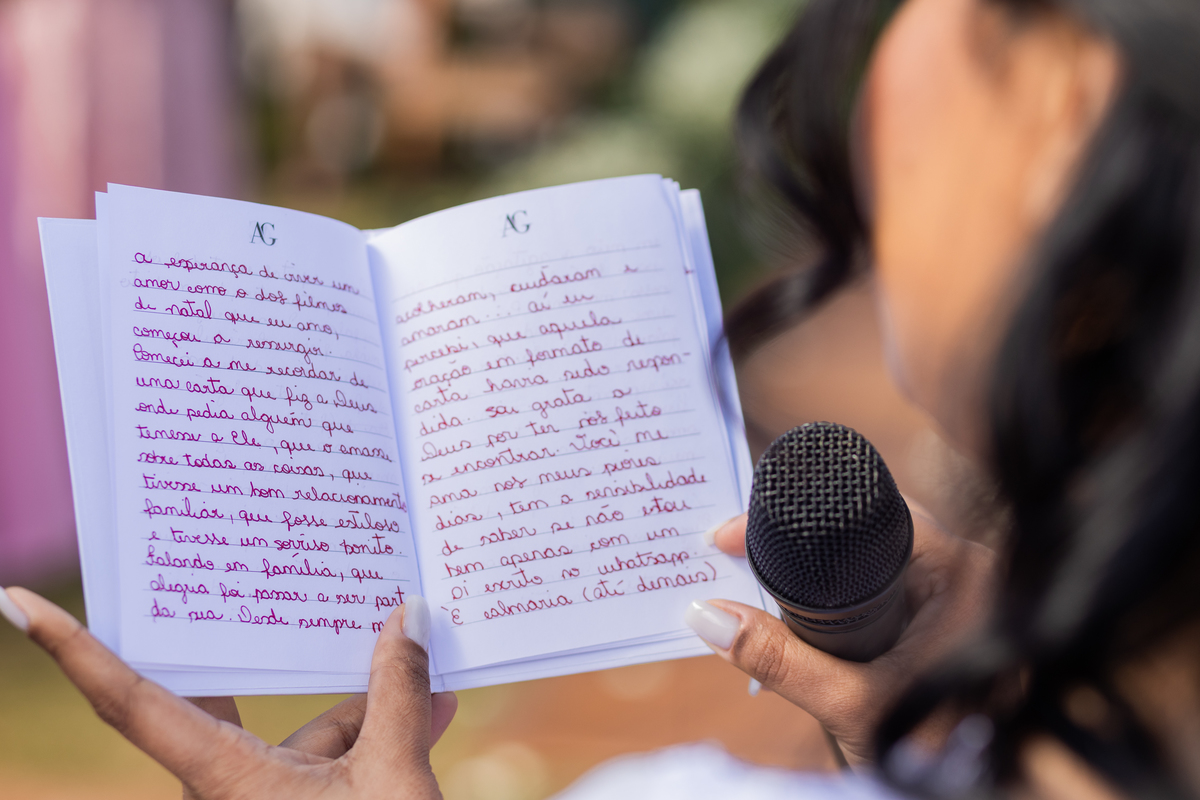 AG
a esperança de viver um
amor como o dos filmes
de natal que eu amo,
começou a ressurgir.
Comecei a me recordar de
uma carta que fiz a Deus
onde pedia alguém que
temesse a Ele, que o amasse
sobre todas as coisas, que
tivesse um bom relacionamento
familiar, que fosse estiloso
e tivesse um sorriso bonito.
Falando em família, que
alegria foi passar a ser part
da sua. Desde sempre m
AG
acolheram, cuidaram e
amaram... aí eu
percebi, que aquela
oração em formato de
carta havia sido respon-
dida. Sou grata a
Deus por ter nos feito
se encontrar. Você me
ama nos meus piores
dias, tem a sensibilidade
de saber se não estou
bem apenas com um
oi escrito no whatsapp.
É calmaria (até demais)